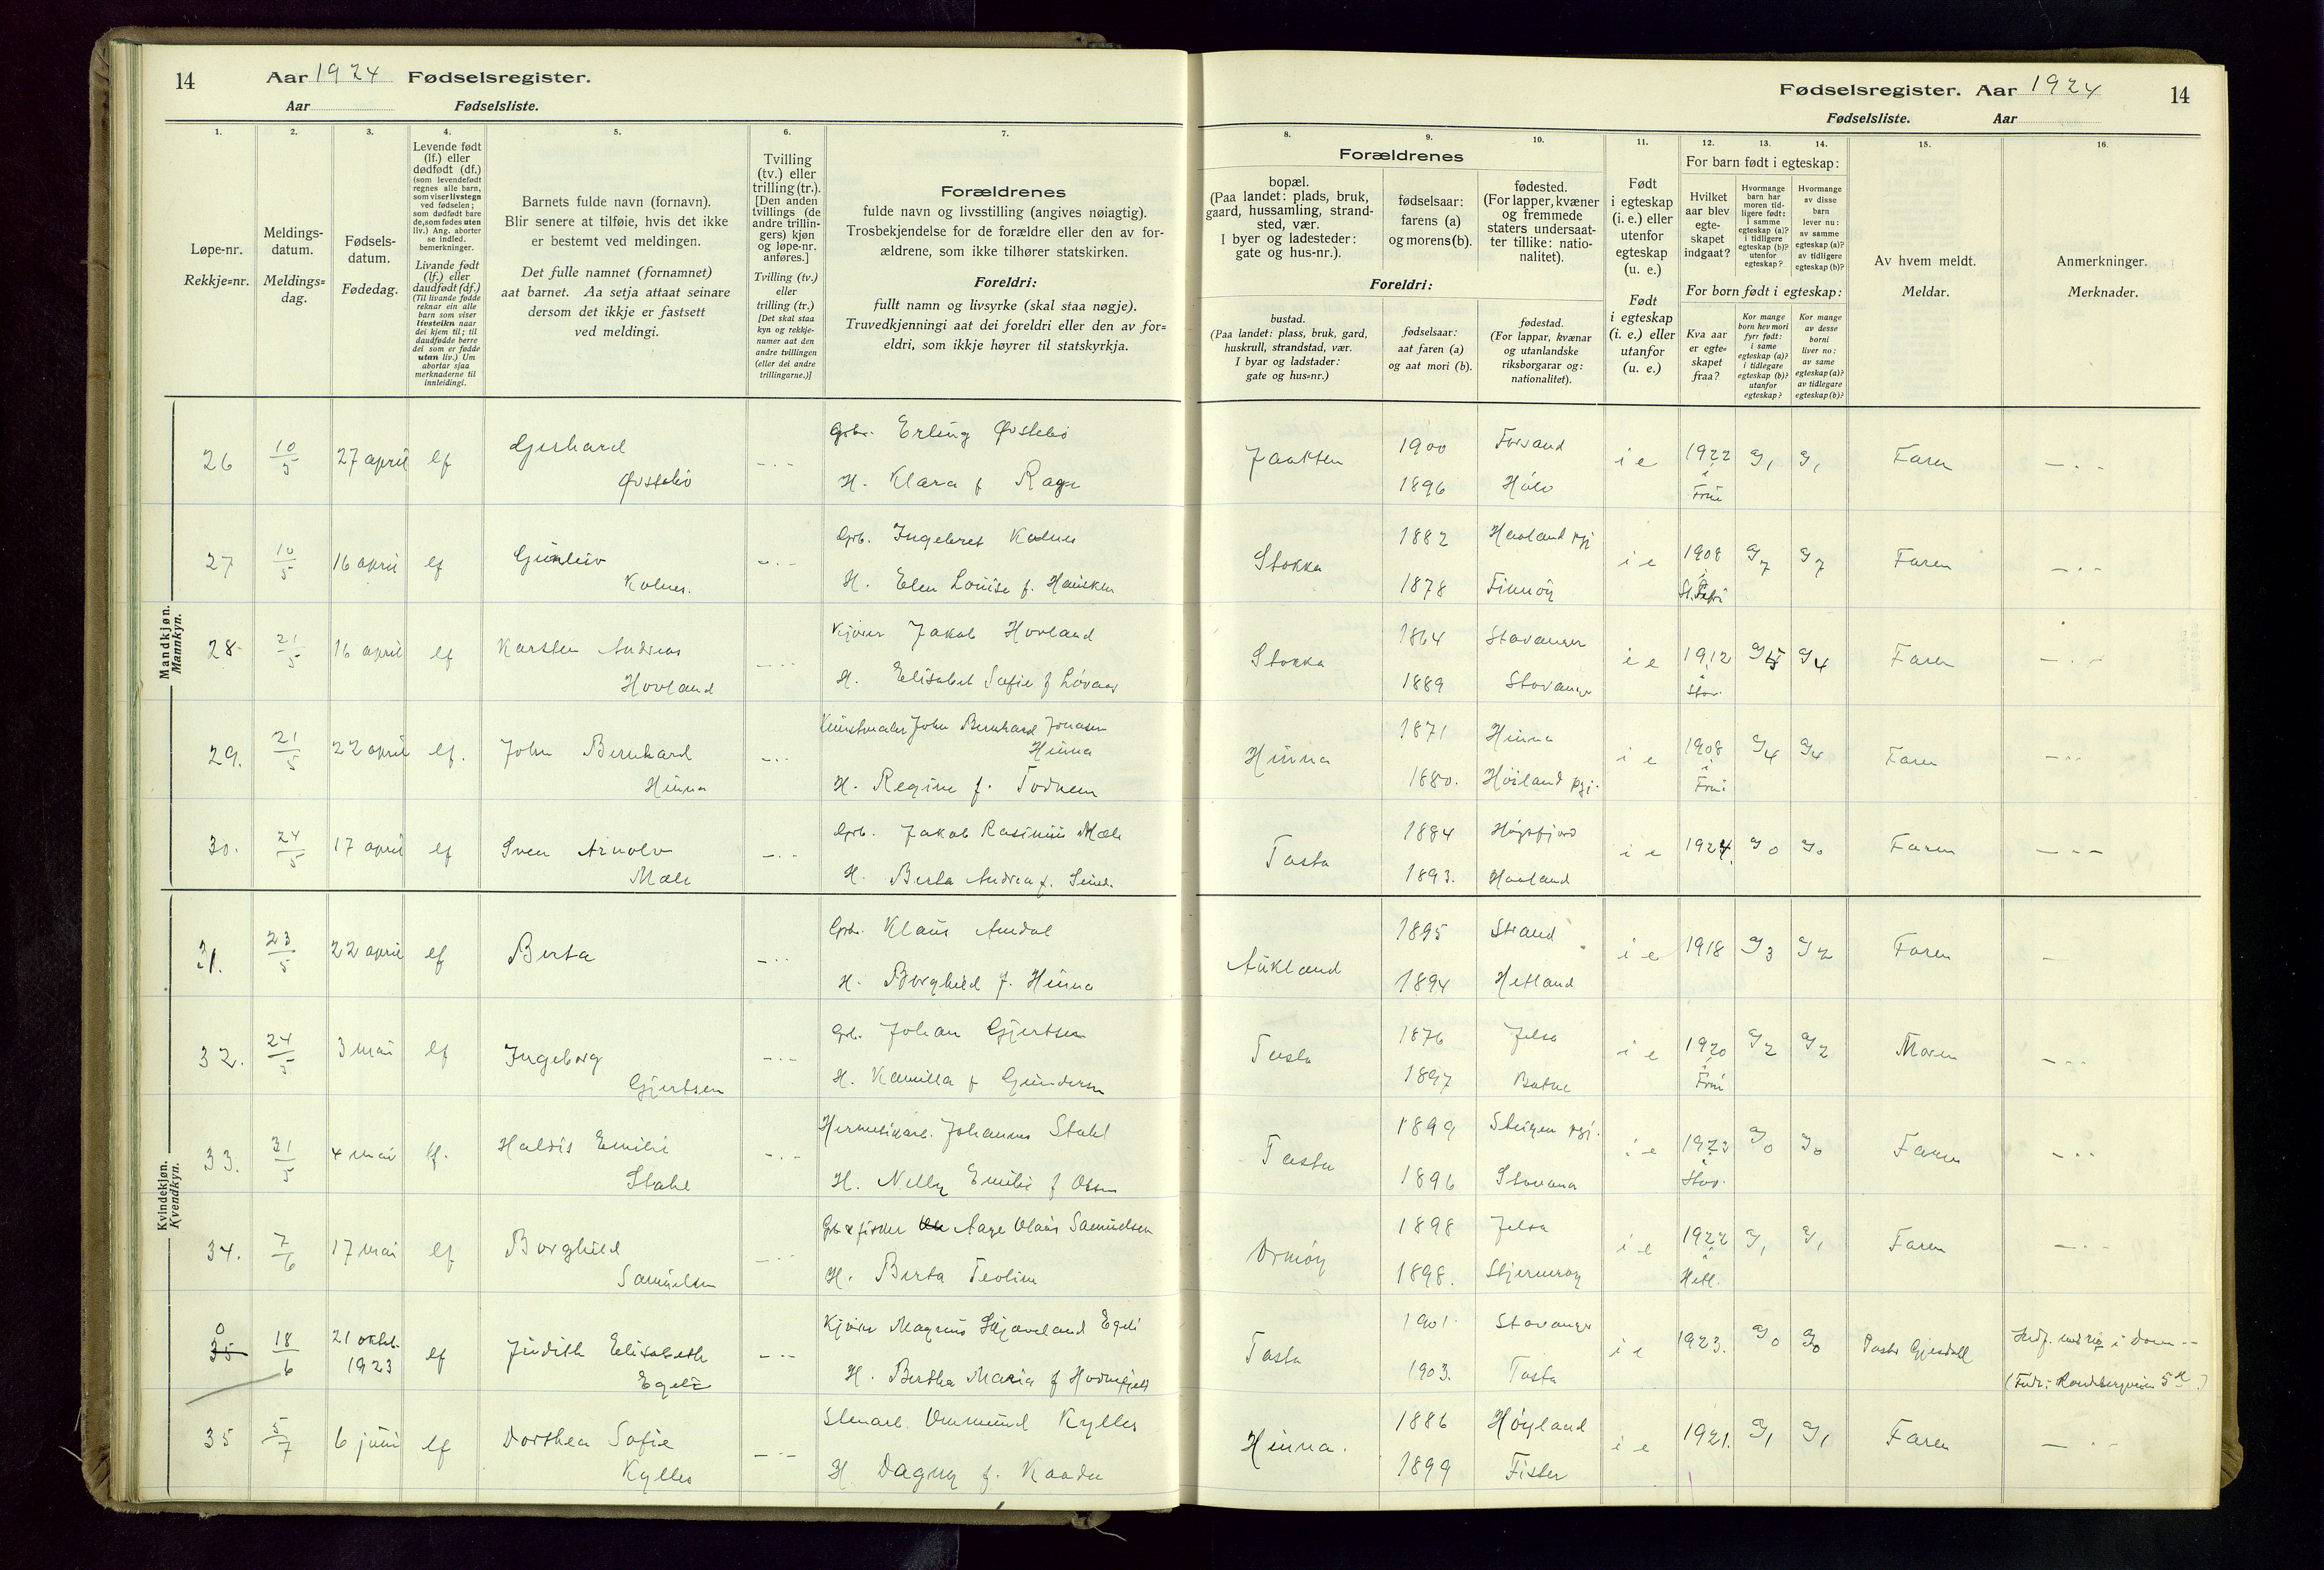 14 Aar 1924 Fødselsregister.
Aar Fødselsliste.
Fødselsregister. Aar 1924 14
Fødselsliste. Aar
1. 2. 3. 4. 5. 6. 7.
Løpe-nr.
Rekkje=nr.
Meldings-
datum.
Meldings=
dag.
Fødsels-
datum.
Fødedag.
Levende født
(lf.) eller
dødfødt (df.)
(som levendefødt
regnes alle barn,
som viser livstegn
ved fødselen;
som dødfødt bare
de, som fødes uten
liv.) Ang. aborter
se indled.
bemerkninger.
Livande født
(lf.) eller
daudfødt (df.)
(Til livande fødde
reknar ein alle
barn som viser
livsteikn naar
dei kjem til; til
daudfødde berre
dei som er fødde
utan liv.) Um
abortar sjaa
merknaderne til
innleidingi.
Barnets fulde navn (fornavn).
Blir senere at tilføie, hvis det ikke
er bestemt ved meldingen.
Det fulle namnet (fornamnet)
aat barnet. Aa setja attaat seinare
dersom det ikkje er fastsett
ved meldingi.
Tvilling
(tv.) eller
trilling (tr.).
[Den anden
tvillings (de
andre trillin-
gers) kjøn
og løpe-nr.
anføres.]
Tvilling (tv.)
eller
trilling (tr.)
[Det skal staa
kyn og rekkje-
numer aat den
andre tvillingen
(eller dei andre
trillingarne.)]
Forældrenes
fulde navn og livsstilling (angives nøiagtig).
Trosbekjendelse for de forældre eller den av for-
ældrene, som ikke tilhører statskirken.
Foreldri:
fullt namn og livsyrke (skal staa nøgje).
Truvedkjenningi aat dei foreldri eller den av for=
eldri, som ikkje høyrer til statskyrkja.
8. 9. 10. 11. 12. 13. 14. 15. 16.
Forældrenes
bopæl.
(Paa landet: plads, bruk,
gaard, hussamling, strand-
sted, vær.
I byer og ladesteder:
gate og hus-nr.).
fødselsaar:
farens (a)
og morens (b).
fødested.
(For lapper, kvæner
og fremmede
staters undersaat-
ter tillike: natio-
nalitet).
Foreldri:
bustad.
(Paa landet: plass, bruk, gard,
huskrull, strandstad, vær.
I byar og ladstader:
gate og hus-nr.)
fødselsaar:
aat faren (a)
og aat mori (b).
fødestad.
(For lappar, kvænar
og utanlandske
riksborgarar og:
nationalitet).
Født
i egteskap
(i. e.) eller
utenfor
egteskap
(u. e.)
Født
i egteskap
(i. e.) eller
utanfor
(u. e.)
For barn født i egteskap:
Hvilket
aar blev
egte-
skapet
indgaat?
Hvormange
barn har
moren tid-
ligere født:
i samme
egteskap (a)?
i tidligere
egteskap (b)?
utenfor
egteskap?
Hvormange
av disse
barn
lever nu:
av samme
egteskap (a)?
av tidligere
egteskap (b)?
For born født i egteskap:
Kva aar
er egte-
skapet
fraa?
Kor mange
born hev mori
fyrr født:
i same
egteskap (a)?
i tidlegare
egteskap (b)?
utanfor
egteskap?
Kor mange
av desse
borni
liver no:
av same
egteskap (a)?
av tidlegare
egteskap (b)?
Av hvem meldt.
Meldar.
Anmerkninger.
Merknader.
Mandkjøn.
Mannkyn.
26 10/5 27 april lf Gerhard Grbr. Erling Østebø 1900
Østebø H. Klara f Rage Jaatten 1896 i e 1922 Faren
27 10/5 16 april lf Gunleiv Grb. Ingebret Kolnes 1882
Kolnes. H. Elen Louise f. Hausken Stokka 1878 Finnøy i e 1908 Faren
28 21/5 16 april lf Karsten Andreas Kjører Jakob Hovland 1864 Stavanger
Hovland H. Elisabet Sofie f Løvaas Stokka 1889 Stavanger i e 1912 Stav. Faren
29. 21/5 22 april lf. John Bernhard Kunstmaler John Bernhard Jonasen 1871 Hinna
Hinna Hinna
H. Regine f. Todnem Hinna 1880. Høiland pgj. i e 1908 Faren
30. 24/5 17 april lf Sven Arnolv Grb. Jakob Rasmus Mæle 1884 Høgsfjord
Mæle H. Berta Andrea f. Tasta 1893. i e 1924. Faren
Kvindekjøn.
Kvendkyn.
31. 23/5 22 april lf Berta Grb. Klaus Amdal 1895 Strand
H. Borghild f. Hinna Aukland 1894 Hetland i e 1918 Faren
32. 24/5 3 mai lf Ingeborg Grb. Johan Gjertsen 1876 Jelsa
Gjertsen H. Kamilla f Gundersen Tasta 1897 i e 1920 Moren
33. 31/5 4 mai lf. Haldis Emilie Hermetikarb. Johannes Stahl 1899 Steigen pgj.
Stahl H. Nelly Emilie f Olsen Tasta 1896 Stavanger i e Stav. Faren
34. 7/6 17 mai lf Borghild Grb & fisker Aage Olaus Samuelsen 1898 Jelsa
Samuelsen H. Berta Teoline Ormøy 1898. Stjernerøy i e 1922 Hetl. Faren
0
35 18/6 21 oktb. 1923 lf Judith Elisabeth Kjører Magnus Skjæveland Egeli 1901. Stavanger
Egeli H. Bertha Maria f Hodnefjeld Tasta 1903. Tasta i e 1923. Pastor Gjesdal
35 5/7 6 juni lf Dorthea Sofie Stenarb. Ommund Kylles 1886 Høyland
Kylles H. Dagny f. Kaada Hinna. 1899 Fister i e 1921. Faren